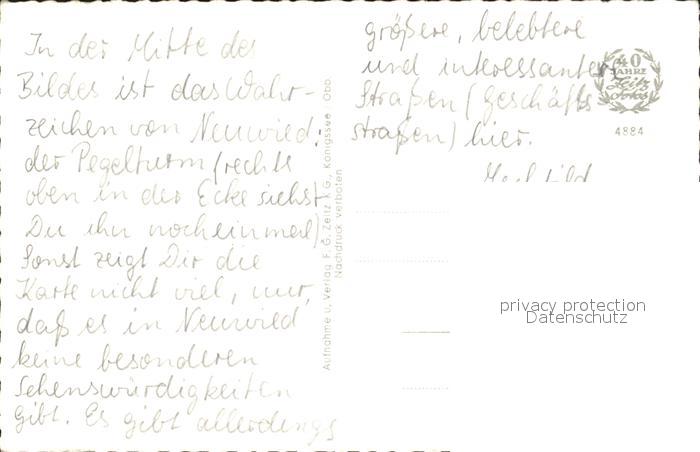 In der Mitte des
Bildes ist das Wahr-
zeichen von Neuwied:
der Pegelturm (rechts
oben in der Ecke siehst
Du ihn nocheinmal)
Sonst zeigt Dir die
Karte nicht viel, nur,
daß es in Neuwied
keine besonderen
Sehenswürdigkeiten
gibt. Es gibt allerdings
größere, belebtere
und interessante
Straßen (Geschäfts
straßen) hier.
Aufnahme u. Verlag F. G. Zeitz K G., Königssee / Obb.
Nachdruck verboten
40
JAHRE
Zeitz
Fotos
4884
privacy protection
Datenschutz